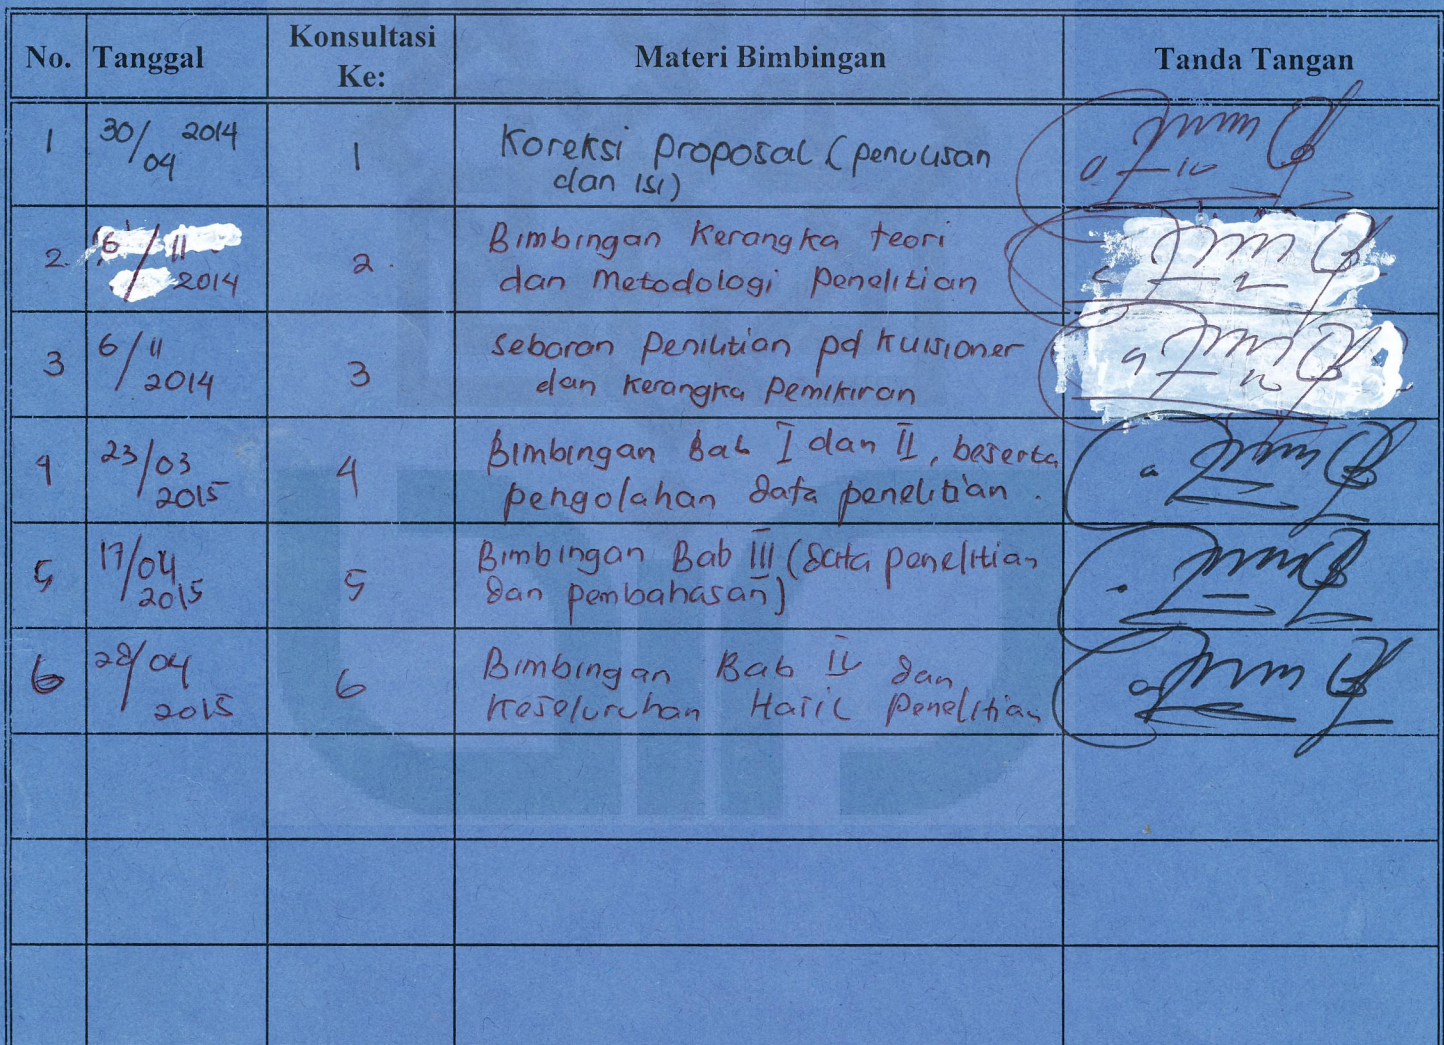 No. Tanggal Konsultasi Ke: Materi Bimbingan Tanda Tangan
1 30/04 2014 1 Koreksi proposal (penulisan
dan isi)
2. 6/11 2014 2. Bimbingan Kerangka teori
dan Metodologi Penelitian
3 6/11 2014 3 sebaran Penilitian pd kuisioner
dan kerangka Pemikiran
4 23/03 2015 4 Bimbingan Bab I dan II, beserta
pengolahan data penelitian.
5 17/04 2015 5 Bimbingan Bab III (data penelitian
dan pembahasan)
6 28/04 2015 6 Bimbingan Bab IV dan
keseluruhan Hasil Penelitian